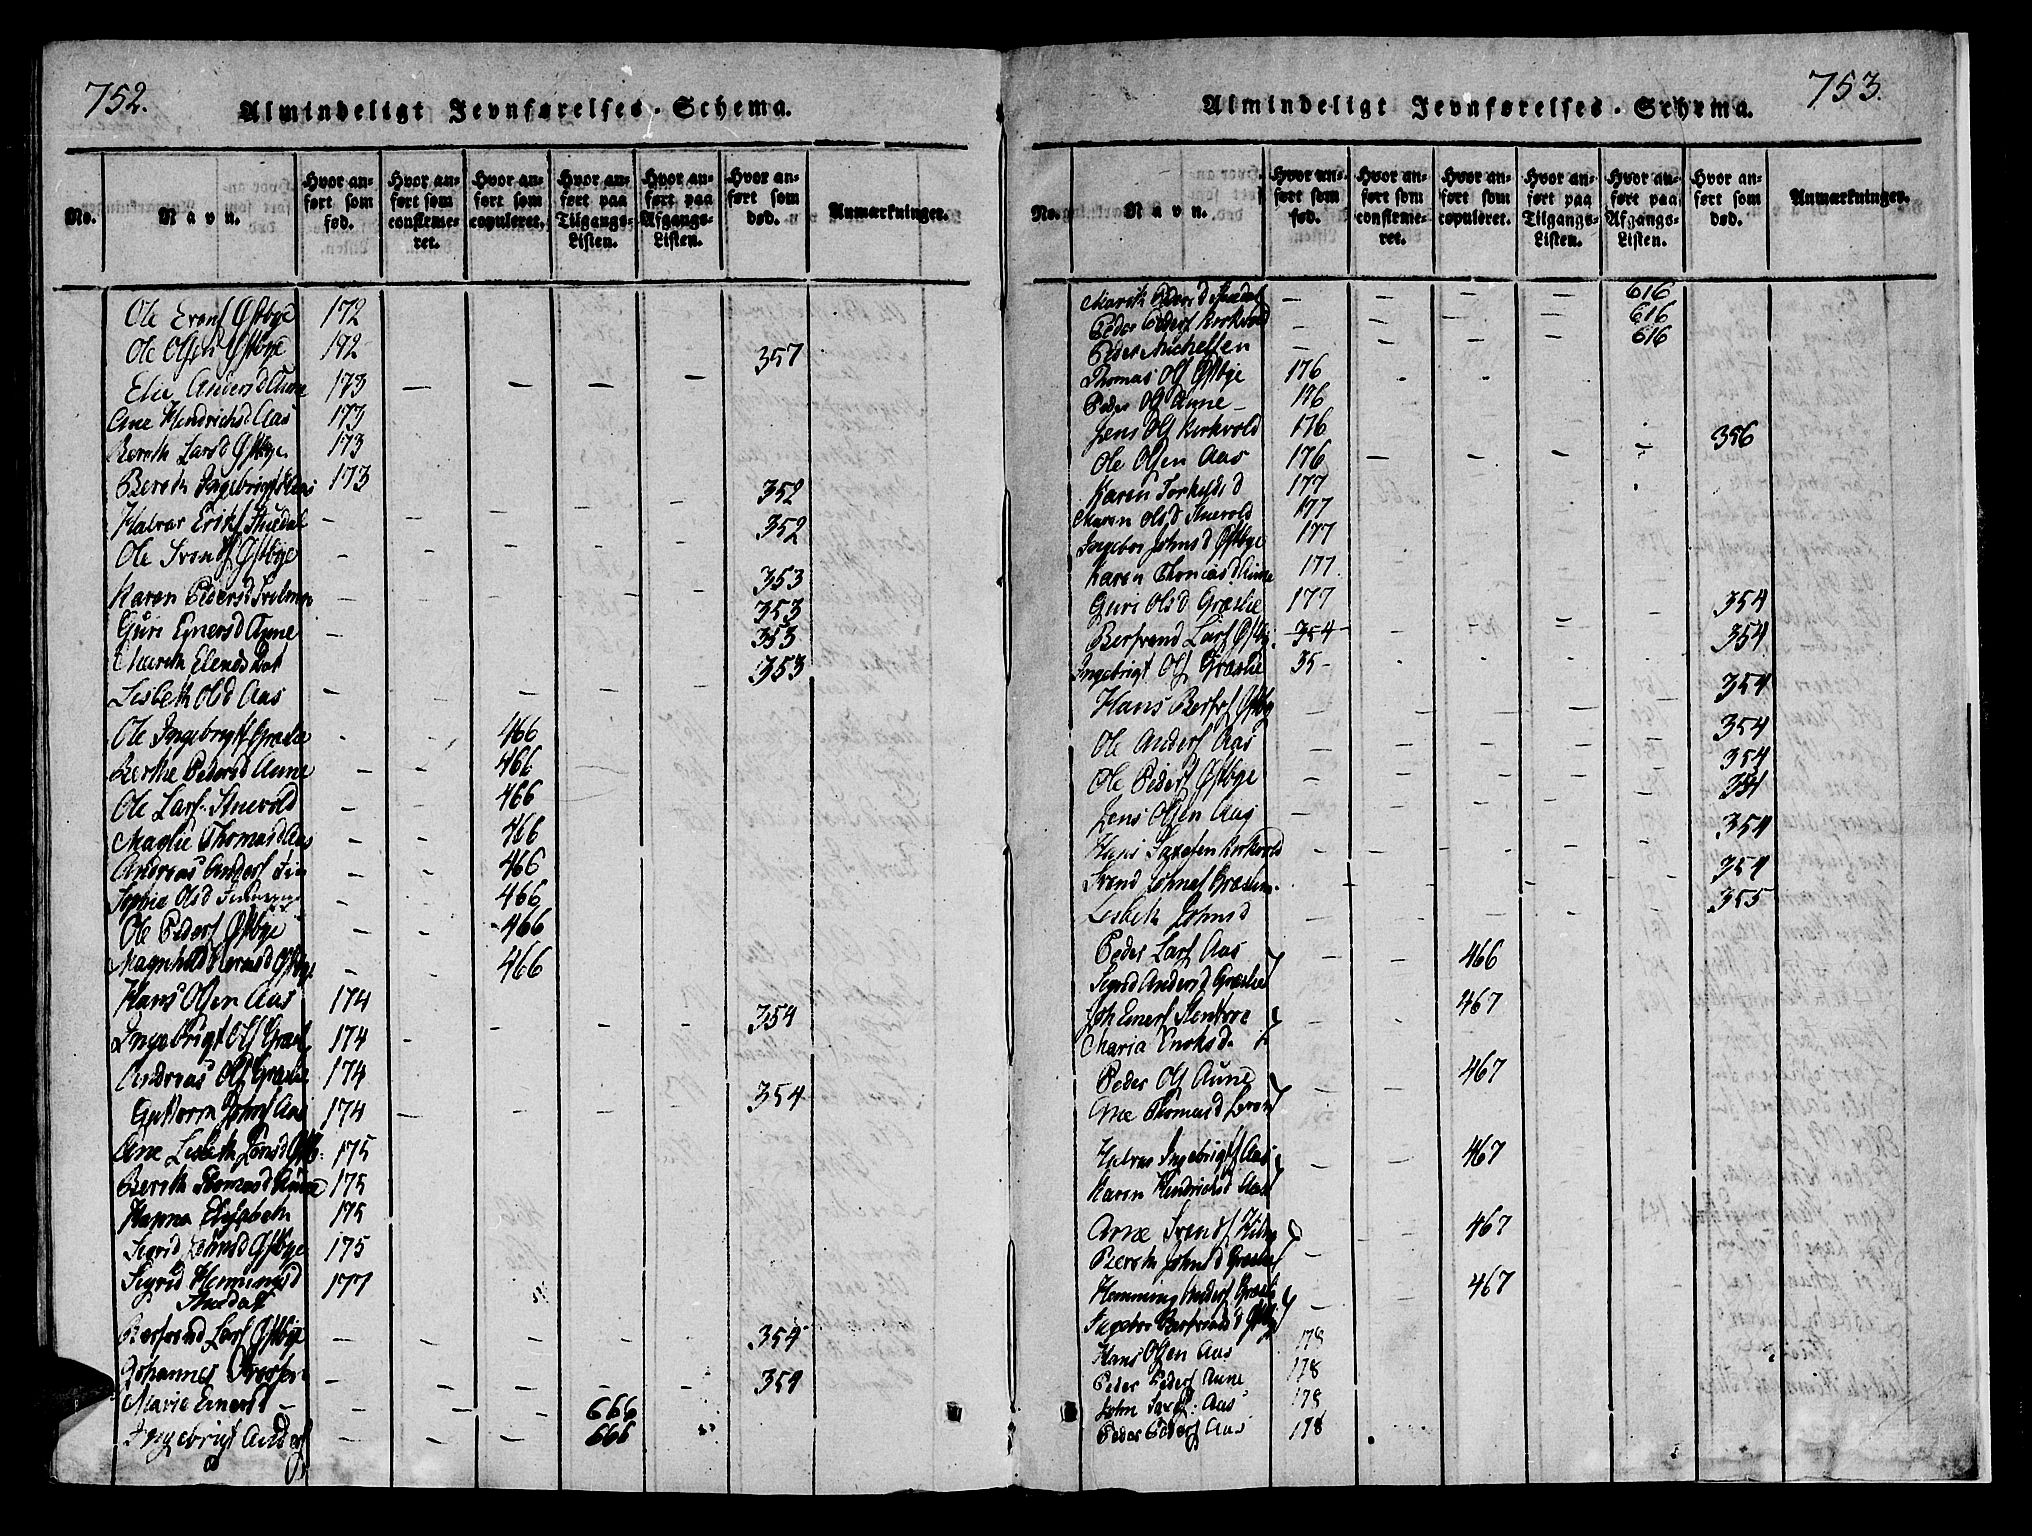 752.
Almindeligt Jevnførelses-Schema.
No.
Navn.
Hvor anført som fød.
Hvor anført som confirmeret.
Hvor anført som copuleret.
Hvor anført paa Tilgangs-Listen.
Hvor anført paa Afgangs-Listen.
Hvor anført som død.
Anmærkninger.
Ole Evens Østbye 172
Ole Olsen Østbye 172 357
Elie Andersd Aune 173 — — — —
Ane Hendrichsd Aas 173
Bereth Larsd Østbye 173
Bereth Ingebrigtsd Aas 173 352
Halvor Eriks Stuedal — — — — — 352
Ole Svends Østbye — — — — —
Karen Pedersd — 353
Guri Enersd Aune — 353
353
Mareth Elends 353
Lisbeth Olsd Aas — — — — —
Ole Ingebrigts Græslie - - 466
Berthe Pedersd Aune — — 466
Ole Lars. Stuevold — — 466
Maglie Thomasd Aas — — 466
Andreas Anders — — 466
Sophie Olsd — — 466
Ole Peders Østbye — — 466
Magnhild — 466
Hans Olsen Aas 174 - — — 354
Ingebrigt Ols Græsl 174 —
Andreas Ols Græslie 174 354
Guttorm Johns Aas 174 — — — —
Ane Lisbeth Jonsd Østb: 175
Bereth Thomasd Aune 175
Hanna Elisabeth 175
Sigrid Johnsd Østbye 175
Sigrid Hemmingsd 177
Stuedal
Bersvend Lars Østbye — — — — — 354
Johannes — — — — — 354
Marie Enersd — — — 666
Ingebrigt Anders — — — 666
753.
Almindeligt Jevnførelses-Schema.
No.
Navn.
Hvor anført som fød.
Hvor anført som confirmeret.
Hvor anført som copuleret.
Hvor anført paa Tilgangs-Listen.
Hvor anført paa Afgangs-Listen.
Hvor anført som død.
Anmærkninger.
Mareth Pedersd Stuedal — — — — 616
Peder Peders Kirkvold — — — — 616
Peder Michelsen — — — — 616
Thomas Ols Østbye 176
Peder Ols Aune 176
Jens Ols Kirkvold 176 356
Ole Olsen Aas 176 — — — —
Karen Torkelsd 177
Maren Olsd Stuevold 177
Ingebor Johnsd Østbye 177
Karen Thomasd Aune 177
Guri Olsd Græslie 177 354
Bersvend Lars Østby 354 354
Ingebrigt Ols Græslie 35-
354
Hans Bers Østby — — — — —
354
Ole Anders Aas — — — — — 354
Ole Peders Østbye — — — — — 354
Jens Olsen Aas — 354
Hans Kirkvold — — — — — 354
Svend Johns Græslie — — — —
355
Lisbeth Johnsd
Peder Lars Aas — — 466
Sigrid Andersd Græslie
Joh Eners — — 467
Maria Enoksd.
Peder Ols Aune — — 467
Ane Thomasd
Halvor Ingebrigts Aas — — 467
Karen Hendrichsd Aas
Arne Svends — — 467
Bereth Johnsd Græslie
Hemming Anders Græslie — — 467
Ingebor Bersvendsd
Hans Olsen Aas 178
Peder Peders Aune 178
John Aas 178
Peder Peders Aas 178